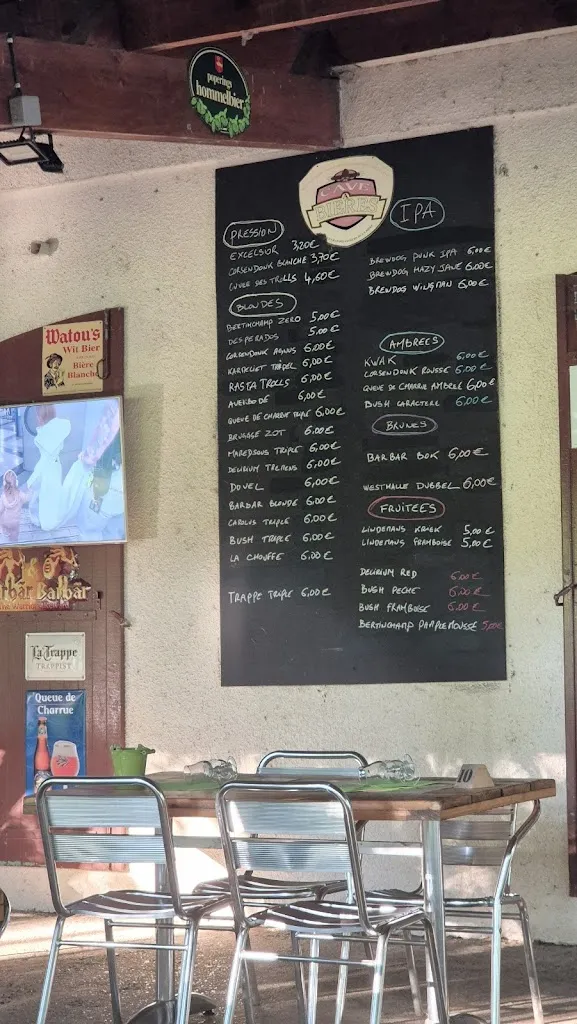 poperings
hommelbier
CAVE
A
BIERES
PRESSION
EXCELSIOR 3,20€
CORSENDONK BLANCHE 3,70€
CUVEE DES TROLLS 4,60€
BLONDES
BERTINCHAMP ZERO 5,00€
DESPERADOS 5,00€
CORSENDONK AGNUS 6,00€
KARMELIET TRIPEL 6,00€
RASTA TROLLS 6,00€
6,00€
QUEUE DE CHARRUE TRIPLE 6,00€
BRUGSE ZOT 6,00€
MAREDSOUS TRIPLE 6,00€
DELIRIUM TREMENS 6,00€
DUVEL 6,00€
BARBAR BLONDE 6,00€
CAROLUS TRIPLE 6,00€
BUSH TRIPLE 6,00€
LA CHOUFFE 6,00€
TRAPPE TRIPLE 6,00€
IPA
BREWDOG PUNK IPA 6,00€
BREWDOG HAZY JANE 6,00€
BREWDOG WINGMAN 6,00€
AMBREES
KWAK 6,00€
CORSENDONK ROUSSE 6,00€
QUEUE DE CHARRUE AMBREE 6,00€
BUSH CARACTERE 6,00€
BRUNES
BARBAR BOK 6,00€
WESTMALLE DUBBEL 6,00€
FRUITEES
LINDEMANS KRIEK 5,00€
LINDEMANS FRAMBOISE 5,00€
DELIRIUM RED 6,00€
BUSH PECHE 6,00€
BUSH FRAMBOISE 6,00€
BERTINCHAMP PAMPLEMOUSSE 5,00€
Watou's
Wit Bier
Bière
Blanche
Barbar
La Trappe
TRAPPIST
Queue de
Charrue
10